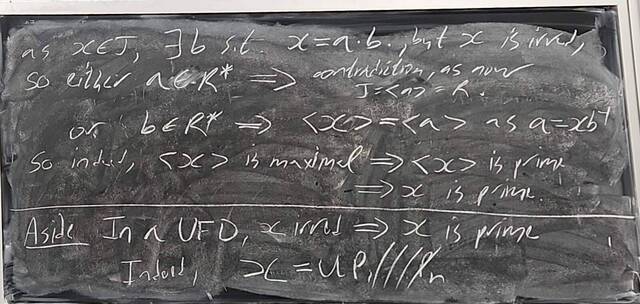 as x∈J, ∃ b s.t. x=a·b, but x is irred,
so either a∈R* ⟹ contradiction, as now
J=<a>=R.
or b∈R* ⟹ <x>=<a> as a=xb⁻¹
so indeed, <x> is maximal ⟹ <x> is prime
⟹ x is prime.
Aside In a UFD, x irred ⟹ x is prime
Indeed, x = u p₁ pₙ